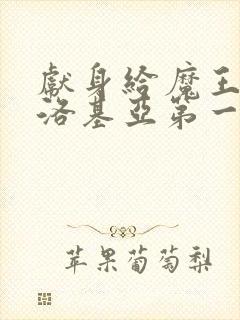 獻身給魔王
洛基亞第一
苹果葡萄梨